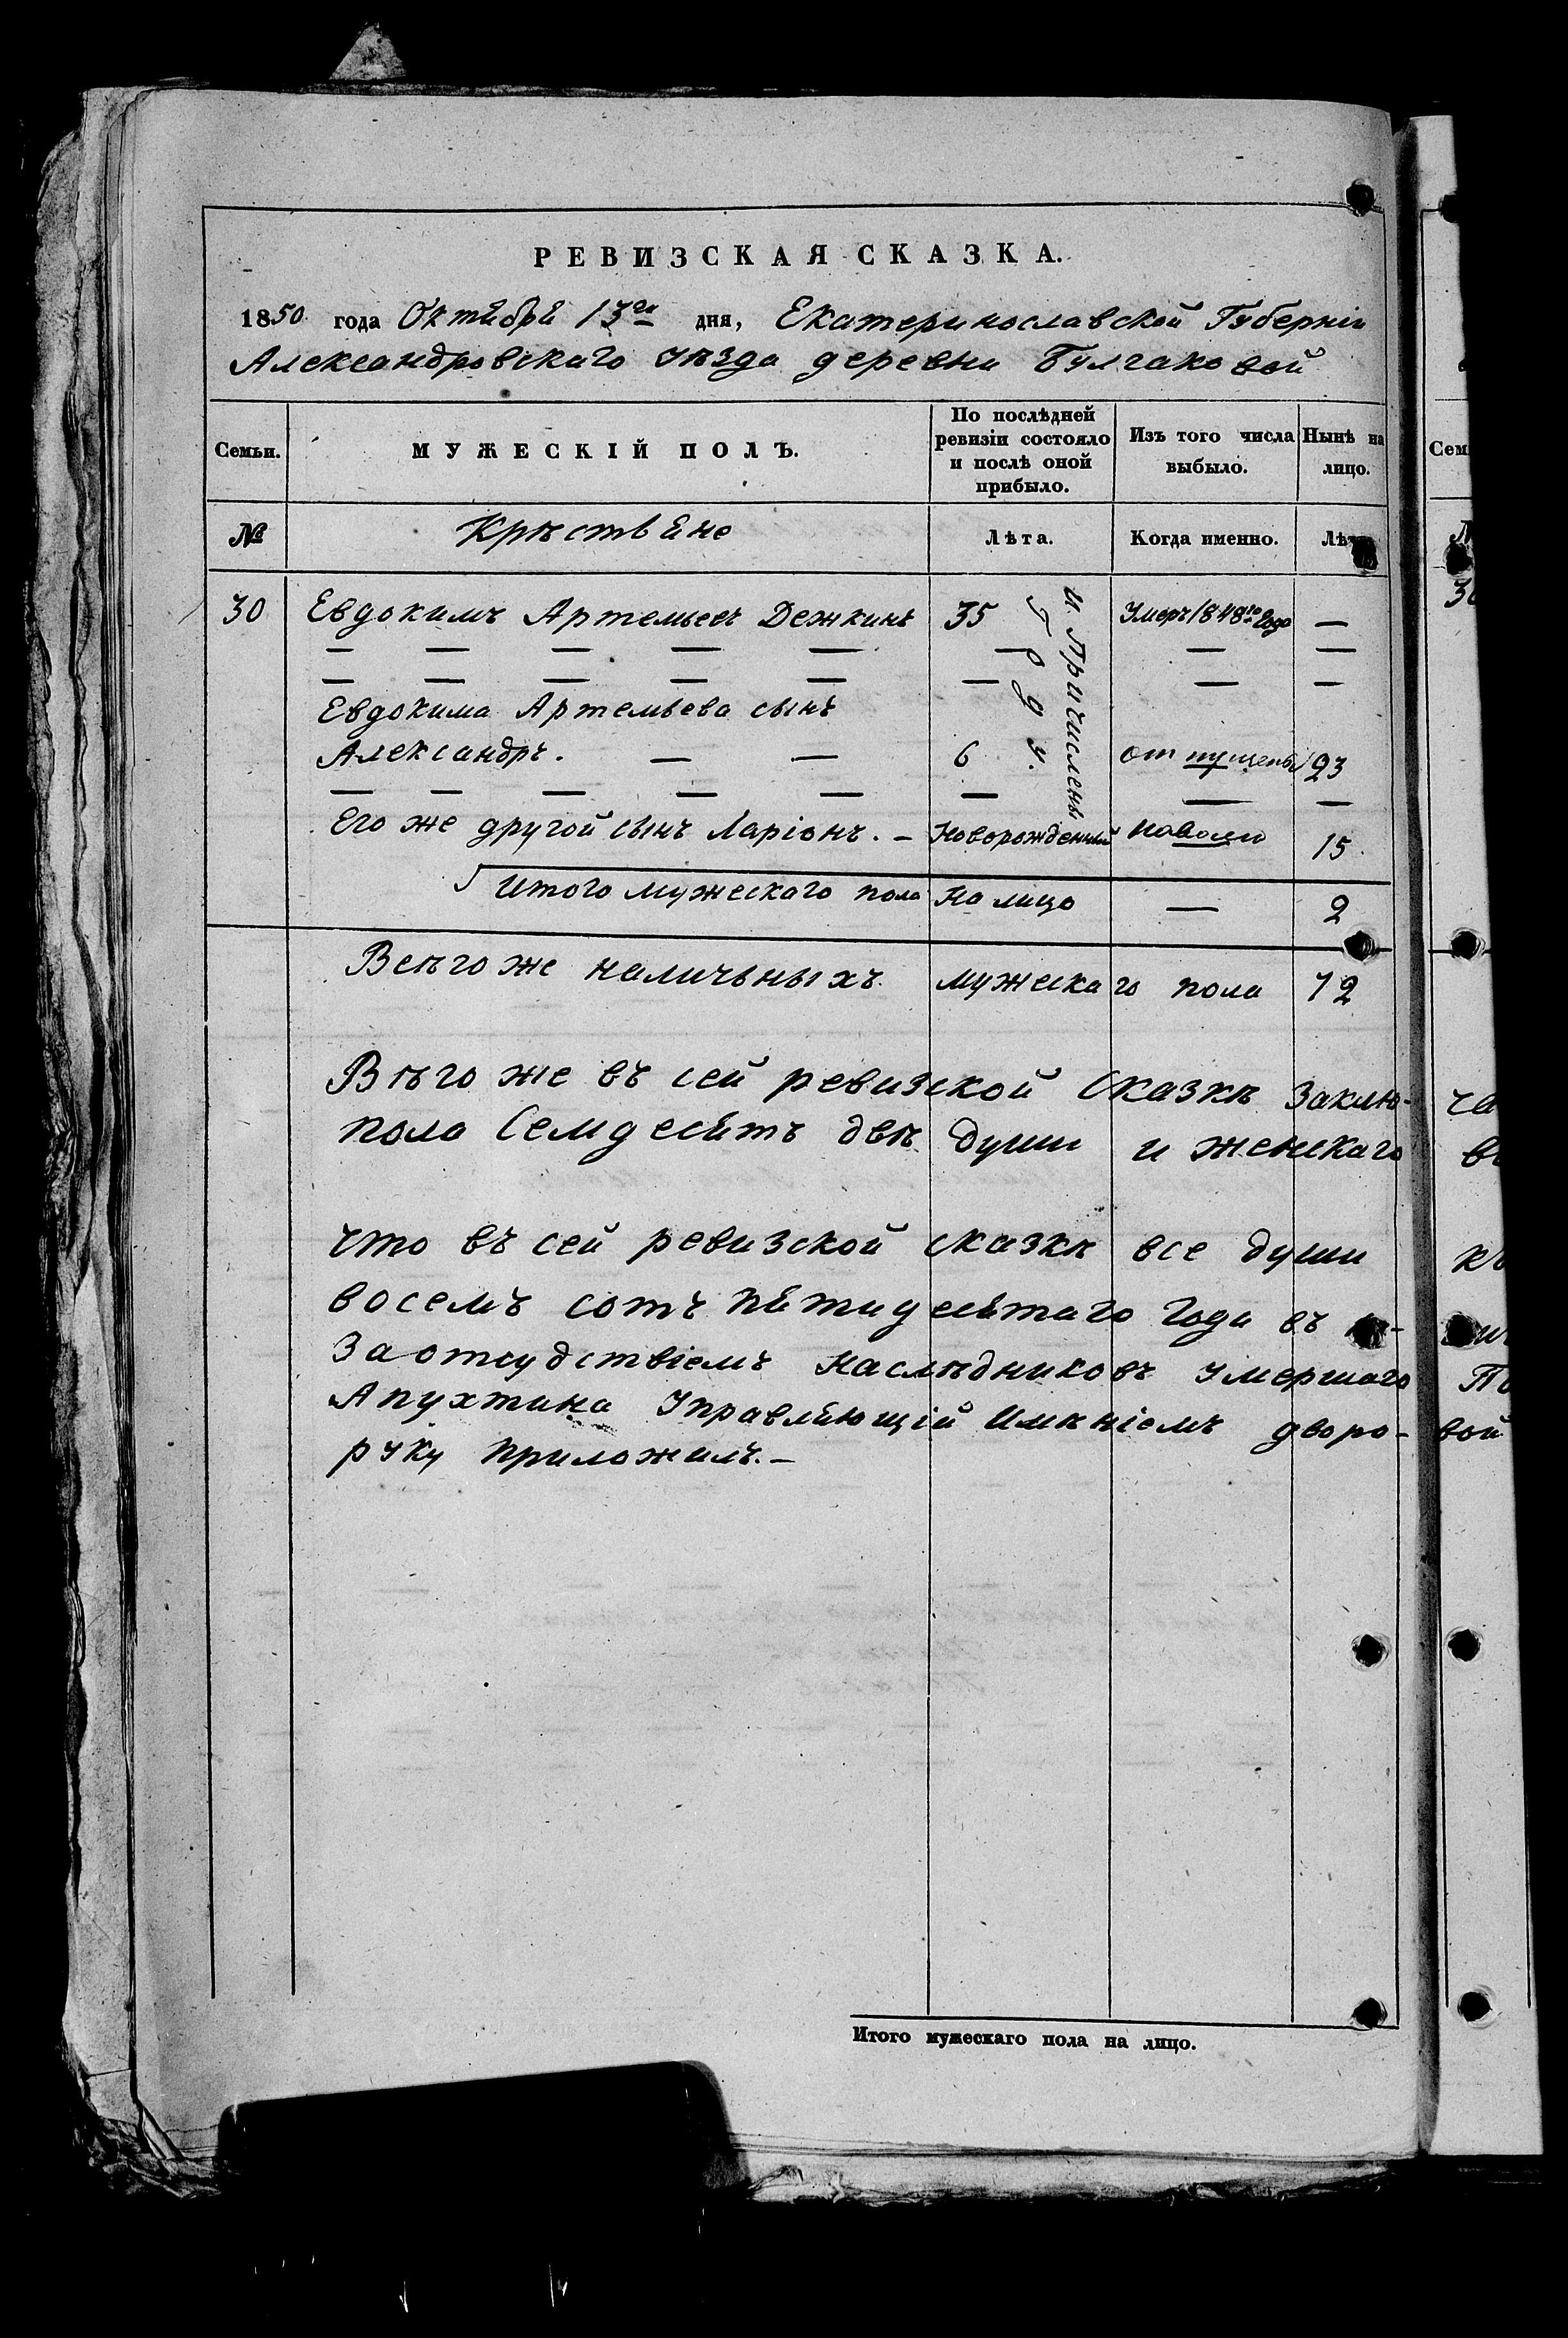 РЕВИЗСКАЯ СКАЗКА.
1850 года Октября 13го дня, Екатеринославской Губерніи
Александровскаго уѣзда деревни Булгаковой
Семьи.
МУЖЕСКІЙ ПОЛЪ.
По послѣдней
ревизіи состояло
и послѣ оной
прибыло.
Изъ того числа
выбыло.
Нынѣ на
лицо.
№
Крѣстьяне
Лѣта.
Когда именно.
30 Евдокимъ Артемьевъ Дежкинъ 35 Умеръ 1848го Года —
Евдокима Артемьева сынъ
Александръ. — — 6 отпущенъ 23
и Причисленъ
Его же другой сынъ Ларіонъ. — Новорожденный наволю 15
Итого мужескаго пола на лицо — 2
Всѣго же наличьныхъ мужескаго пола 72
Всѣго же въ сей ревизской Сказкѣ Заклю-
пола Семдесятъ двѣ души и женскаго
что въ сей ревизской сказкѣ все души
восемъ сотъ пятидесятаго года въ
За отсудствіемъ наслѣдниковъ умершаго
Апухтина Управляющій Имѣніемъ дворо-
руку приложилъ.—
Итого мужескаго пола на лицо.